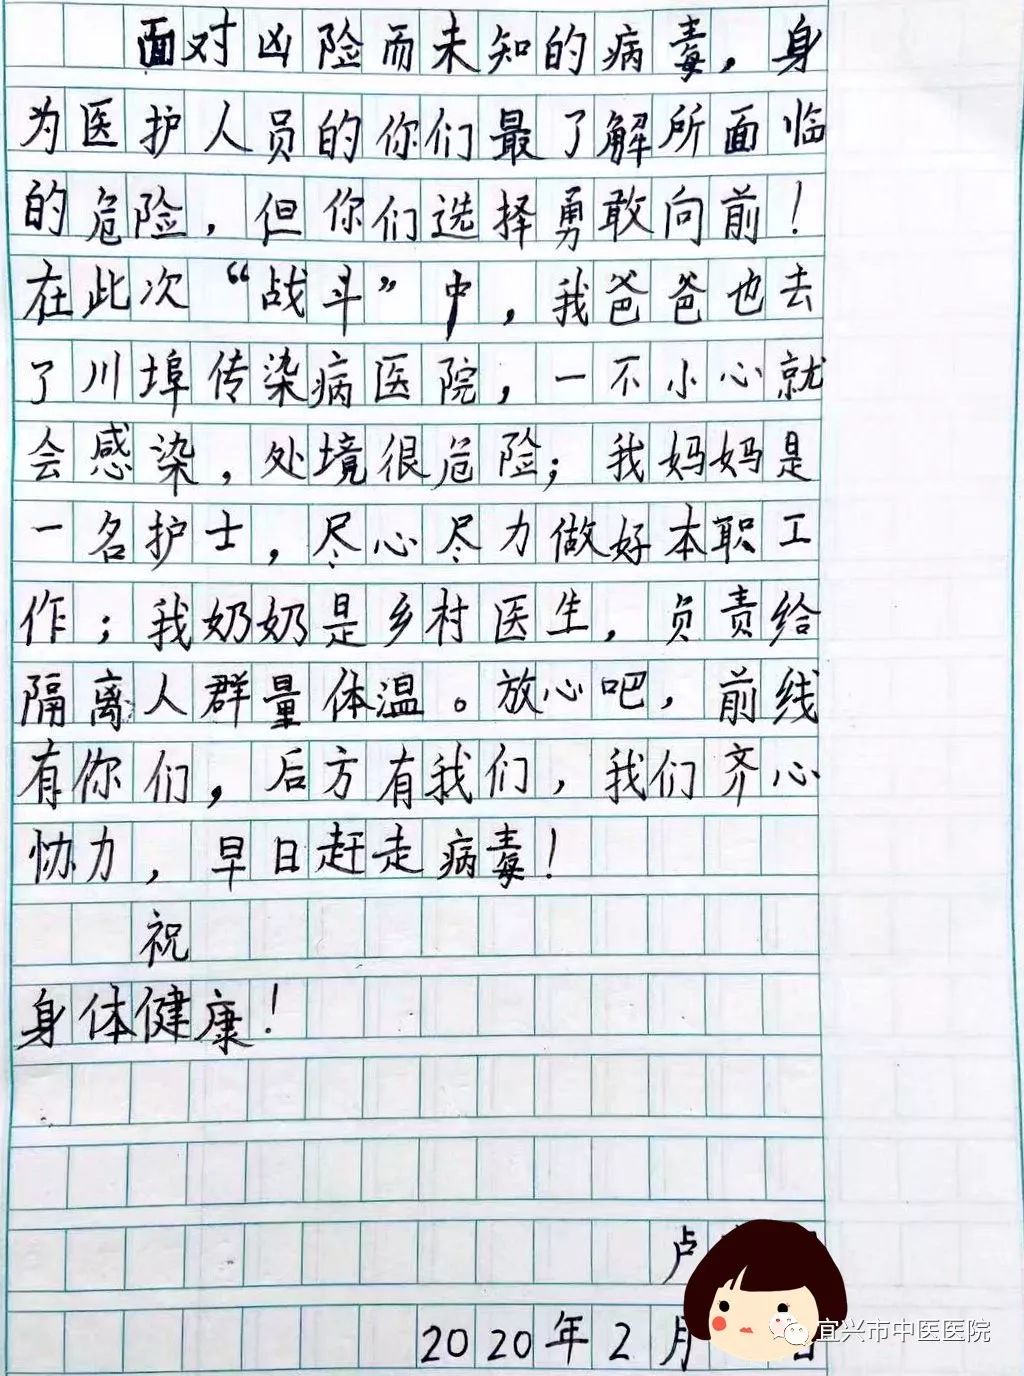 面对凶险而未知的病毒，身
为医护人员的你们最了解所面临
的危险，但你们选择勇敢向前！
在此次“战斗”中，我爸爸也去
了川埠传染病医院，一不小心就
会感染，处境很危险；我妈妈是
一名护士，尽心尽力做好本职工
作；我奶奶是乡村医生，负责给
隔离人群量体温。放心吧，前线
有你们，后方有我们，我们齐心
协力，早日赶走病毒！
祝
身体健康！
卢
2020年2月
宜兴市中医医院